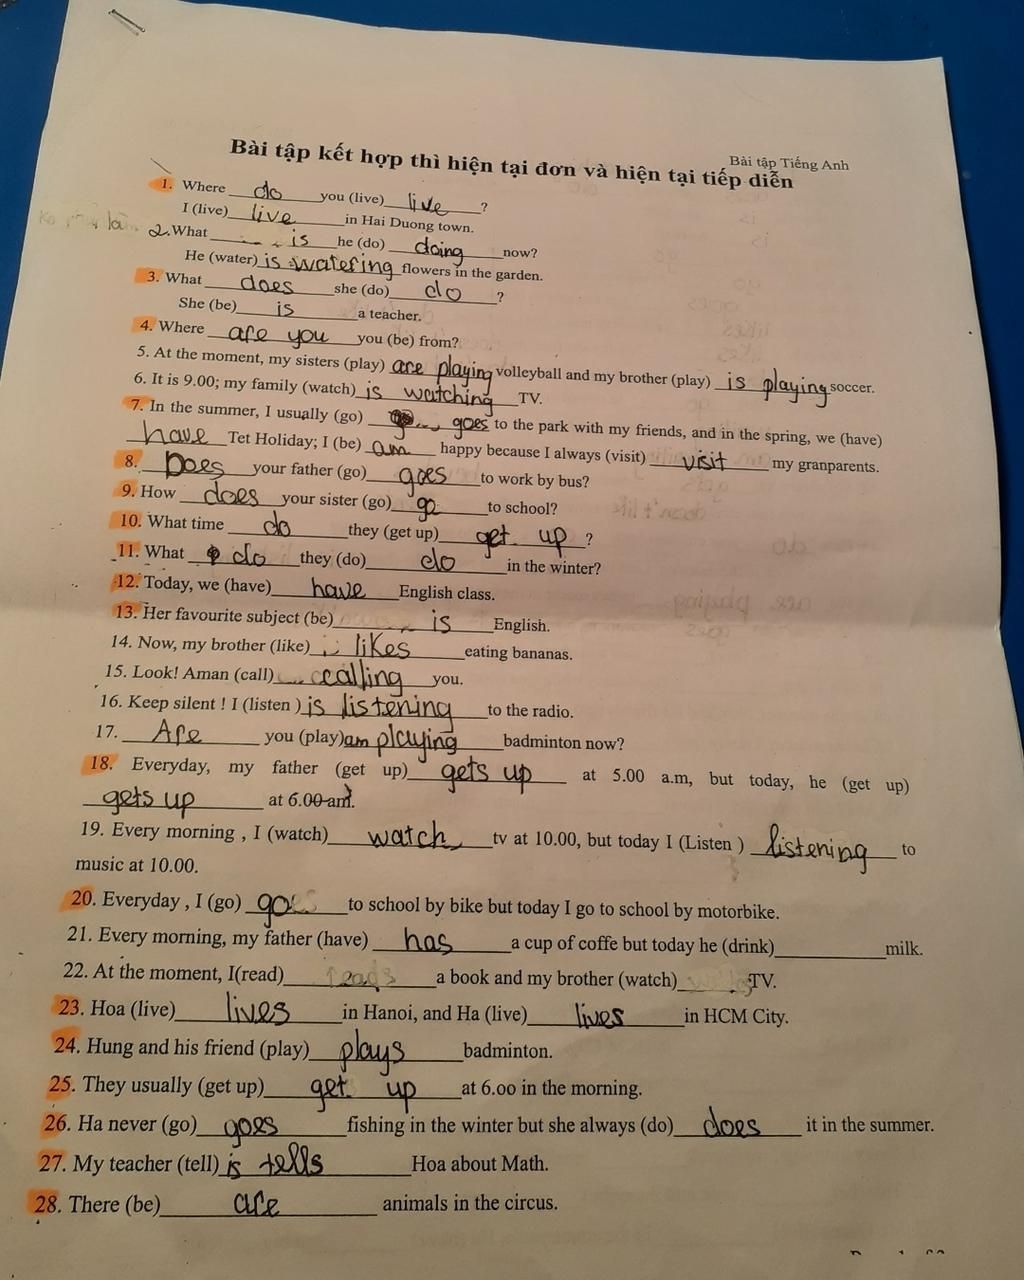 Bài tập Tiếng Anh
Bài tập kết hợp thì hiện tại đơn và hiện tại tiếp diễn
1. Where do you (live) live ?
I (live) live in Hai Duong town.
2. What is he (do) doing now?
He (water) is watering flowers in the garden.
3. What does she (do) do ?
She (be) is a teacher.
4. Where are you you (be) from?
5. At the moment, my sisters (play) are playing volleyball and my brother (play) is playing soccer.
6. It is 9.00; my family (watch) is watching TV.
7. In the summer, I usually (go) goes to the park with my friends, and in the spring, we (have)
have Tet Holiday; I (be) am happy because I always (visit) visit my granparents.
8. Does your father (go) goes to work by bus?
9. How does your sister (go) go to school?
10. What time do they (get up) get up ?
11. What do they (do) do in the winter?
12. Today, we (have) have English class.
13. Her favourite subject (be) is English.
14. Now, my brother (like) likes eating bananas.
15. Look! Aman (call) calling you.
16. Keep silent ! I (listen ) is listening to the radio.
17. Are you (play) am playing badminton now?
18. Everyday, my father (get up) gets up at 5.00 a.m, but today, he (get up)
gets up at 6.00 am.
19. Every morning , I (watch) watch tv at 10.00, but today I (Listen ) listening to
music at 10.00.
20. Everyday , I (go) go to school by bike but today I go to school by motorbike.
21. Every morning, my father (have) has a cup of coffe but today he (drink) milk.
22. At the moment, I(read) reads a book and my brother (watch) TV.
23. Hoa (live) lives in Hanoi, and Ha (live) lives in HCM City.
24. Hung and his friend (play) plays badminton.
25. They usually (get up) get up at 6.oo in the morning.
26. Ha never (go) goes fishing in the winter but she always (do) does it in the summer.
27. My teacher (tell) is tells Hoa about Math.
28. There (be) are animals in the circus.